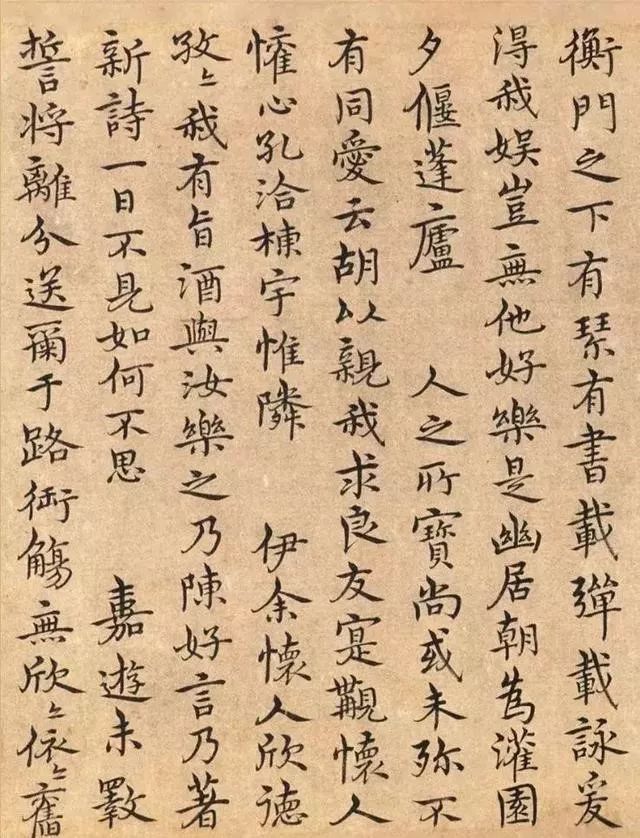 衡門之下有琴有書載彈載詠爰
淂我娱豈無他好樂是幽居朝為灌園
夕偃蓬廬 人之所寶尚或未弥不
有同愛云胡以親我求良友寔覯懐人
懽心孔洽棟宇惟隣 伊余懐人欣徳
孜〻我有旨酒與汝樂之乃陳好言乃著
新詩一日不見如何不思 嘉遊未斁
誓将離分送爾于路銜觴無欣〻依〻舊